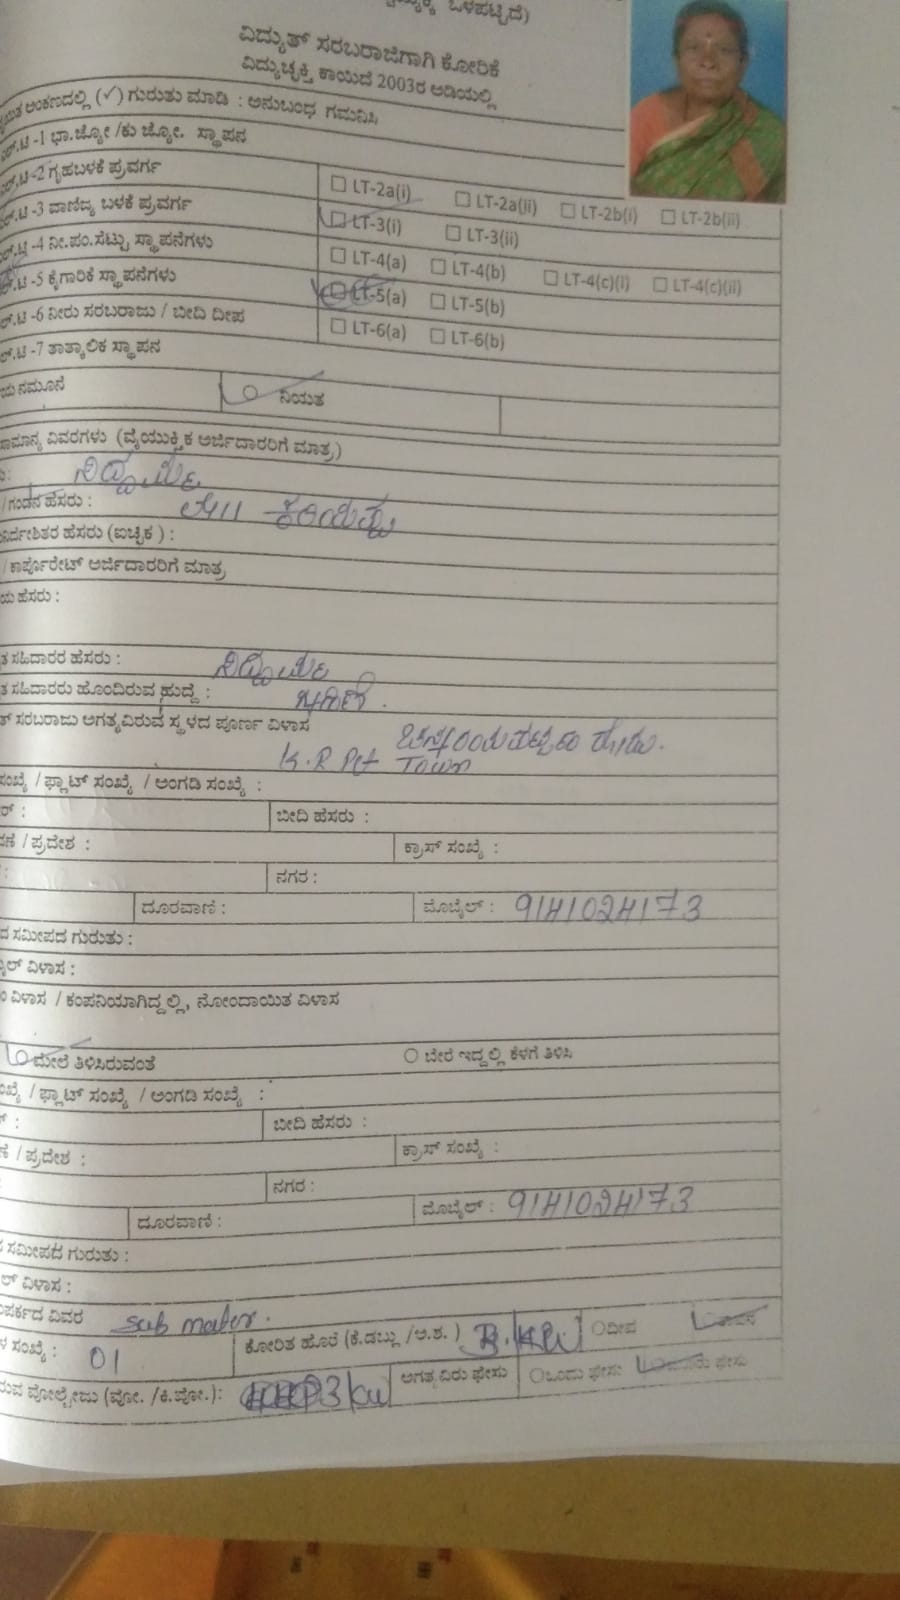 ಒಳಪಟ್ಟಿದೆ)
ವಿದ್ಯುತ್ ಸರಬರಾಜಿಗಾಗಿ ಕೋರಿಕೆ
ವಿದ್ಯುಚ್ಛಕ್ತಿ ಕಾಯಿದೆ 2003ರ ಅಡಿಯಲ್ಲಿ
ಅಂಕಣದಲ್ಲಿ (✓) ಗುರುತು ಮಾಡಿ : ಅನುಬಂಧ ಗಮನಿಸಿ
-1 ಭಾ.ಜ್ಯೋ /ಕು ಜ್ಯೋ. ಸ್ಥಾಪನ
-2 ಗೃಹಬಳಕೆ ಪ್ರವರ್ಗ ☐ LT-2a(i) ☐ LT-2a(ii) ☐ LT-2b(i) ☐ LT-2b(ii)
-3 ವಾಣಿಜ್ಯ ಬಳಕೆ ಪ್ರವರ್ಗ ☐ LT-3(i) ☐ LT-3(ii)
-4 ನೀ.ಪಂ.ಸೆಟ್ಟು ಸ್ಥಾಪನೆಗಳು ☐ LT-4(a) ☐ LT-4(b) ☐ LT-4(c)(i) ☐ LT-4(c)(ii)
-5 ಕೈಗಾರಿಕೆ ಸ್ಥಾಪನೆಗಳು ☐ LT-5(a) ☐ LT-5(b)
-6 ನೀರು ಸರಬರಾಜು / ಬೀದಿ ದೀಪ ☐ LT-6(a) ☐ LT-6(b)
-7 ತಾತ್ಕಾಲಿಕ ಸ್ಥಾಪನ
ನಮೂನೆ ನಿಯತ
ಸಾಮಾನ್ಯ ವಿವರಗಳು (ವೈಯುಕ್ತಿಕ ಅರ್ಜಿದಾರರಿಗೆ ಮಾತ್ರ)
/ ಗಂಡನ ಹೆಸರು :
ನಿರ್ದೇಶಿತರ ಹೆಸರು (ಐಚ್ಛಿಕ ) :
/ ಕಾರ್ಪೊರೇಟ್ ಅರ್ಜಿದಾರರಿಗೆ ಮಾತ್ರ
ಯ ಹೆಸರು :
ತ ಸಹಿದಾರರ ಹೆಸರು :
ತ ಸಹಿದಾರರು ಹೊಂದಿರುವ ಹುದ್ದೆ :
ತ್ ಸರಬರಾಜು ಅಗತ್ಯವಿರುವ ಸ್ಥಳದ ಪೂರ್ಣ ವಿಳಾಸ
K.R Pet Town
ಸಂಖ್ಯೆ / ಫ್ಲಾಟ್ ಸಂಖ್ಯೆ / ಅಂಗಡಿ ಸಂಖ್ಯೆ :
ರ್ : ಬೀದಿ ಹೆಸರು :
ಣೆ / ಪ್ರದೇಶ : ಕ್ರಾಸ್ ಸಂಖ್ಯೆ :
: ನಗರ :
ದೂರವಾಣಿ : ಮೊಬೈಲ್ : 9141024173
ದ ಸಮೀಪದ ಗುರುತು :
ಲ್ ವಿಳಾಸ :
ವಿಳಾಸ / ಕಂಪನಿಯಾಗಿದ್ದಲ್ಲಿ, ನೋಂದಾಯಿತ ವಿಳಾಸ
ಮೇಲೆ ತಿಳಿಸಿರುವಂತೆ ○ ಬೇರೆ ಇದ್ದಲ್ಲಿ ಕೆಳಗೆ ತಿಳಿಸಿ
ಖ್ಯೆ / ಫ್ಲಾಟ್ ಸಂಖ್ಯೆ / ಅಂಗಡಿ ಸಂಖ್ಯೆ :
: ಬೀದಿ ಹೆಸರು :
ಣೆ / ಪ್ರದೇಶ : ಕ್ರಾಸ್ ಸಂಖ್ಯೆ :
ನಗರ :
ದೂರವಾಣಿ : ಮೊಬೈಲ್ : 9141024173
ಸಮೀಪದ ಗುರುತು :
ಲ್ ವಿಳಾಸ :
ಪರ್ಕದ ವಿವರ sub meter.
ಸಂಖ್ಯೆ : 01 ಕೋರಿತ ಹೊರೆ (ಕೆ.ಡಬ್ಲು /ಅ.ಶ. ) ○ದೀಪ
ರುವ ವೋಲ್ಟೇಜು (ವೋ. /ಕಿ.ವೋ.): 3 kw ಅಗತ್ಯವಿರುವ ಫೇಸು ○ಒಂದು ಫೇಸು ಮೂರು ಫೇಸು